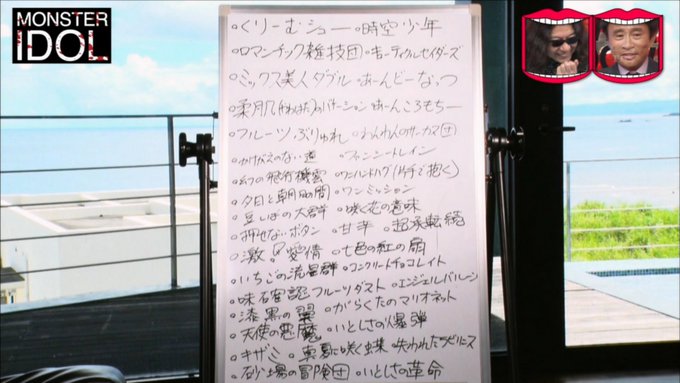 MONSTER
IDOL
・くりーむシュー ・時空少年
・ロマンチック雑技団 ・キューティクルセイダーズ
・ミックス美人ダブル ・あーんどーなっつ
・柔肌(やわはだ)のバケーション ・あーんころもちー
・フルーツぶりゅれ ・わんわんのサーカス団
・かけがえのない道 ・ファンシートレイン
・幻の飛行機雲 ・ワンハンドハグ(片手で抱く)
・夕日と朝日の間 ・ワンミッション
・豆しばの大群 ・咲く花の意味
・押せないボタン ・甘辛 ・起承転続
・激愛情 ・七色の紅の扇
・いちごの流星群 ・コンクリートチョコレイト
・味石確認フルーツダスト ・エンジェルバルーン
・漆黒の翼 ・がらくたのマリオネット
・天使の悪魔 ・いとしさの爆弾
・キザミ ・真夏に咲く蝶 ・失われたラビリンス
・砂場の冒険団 ・いとしさの革命